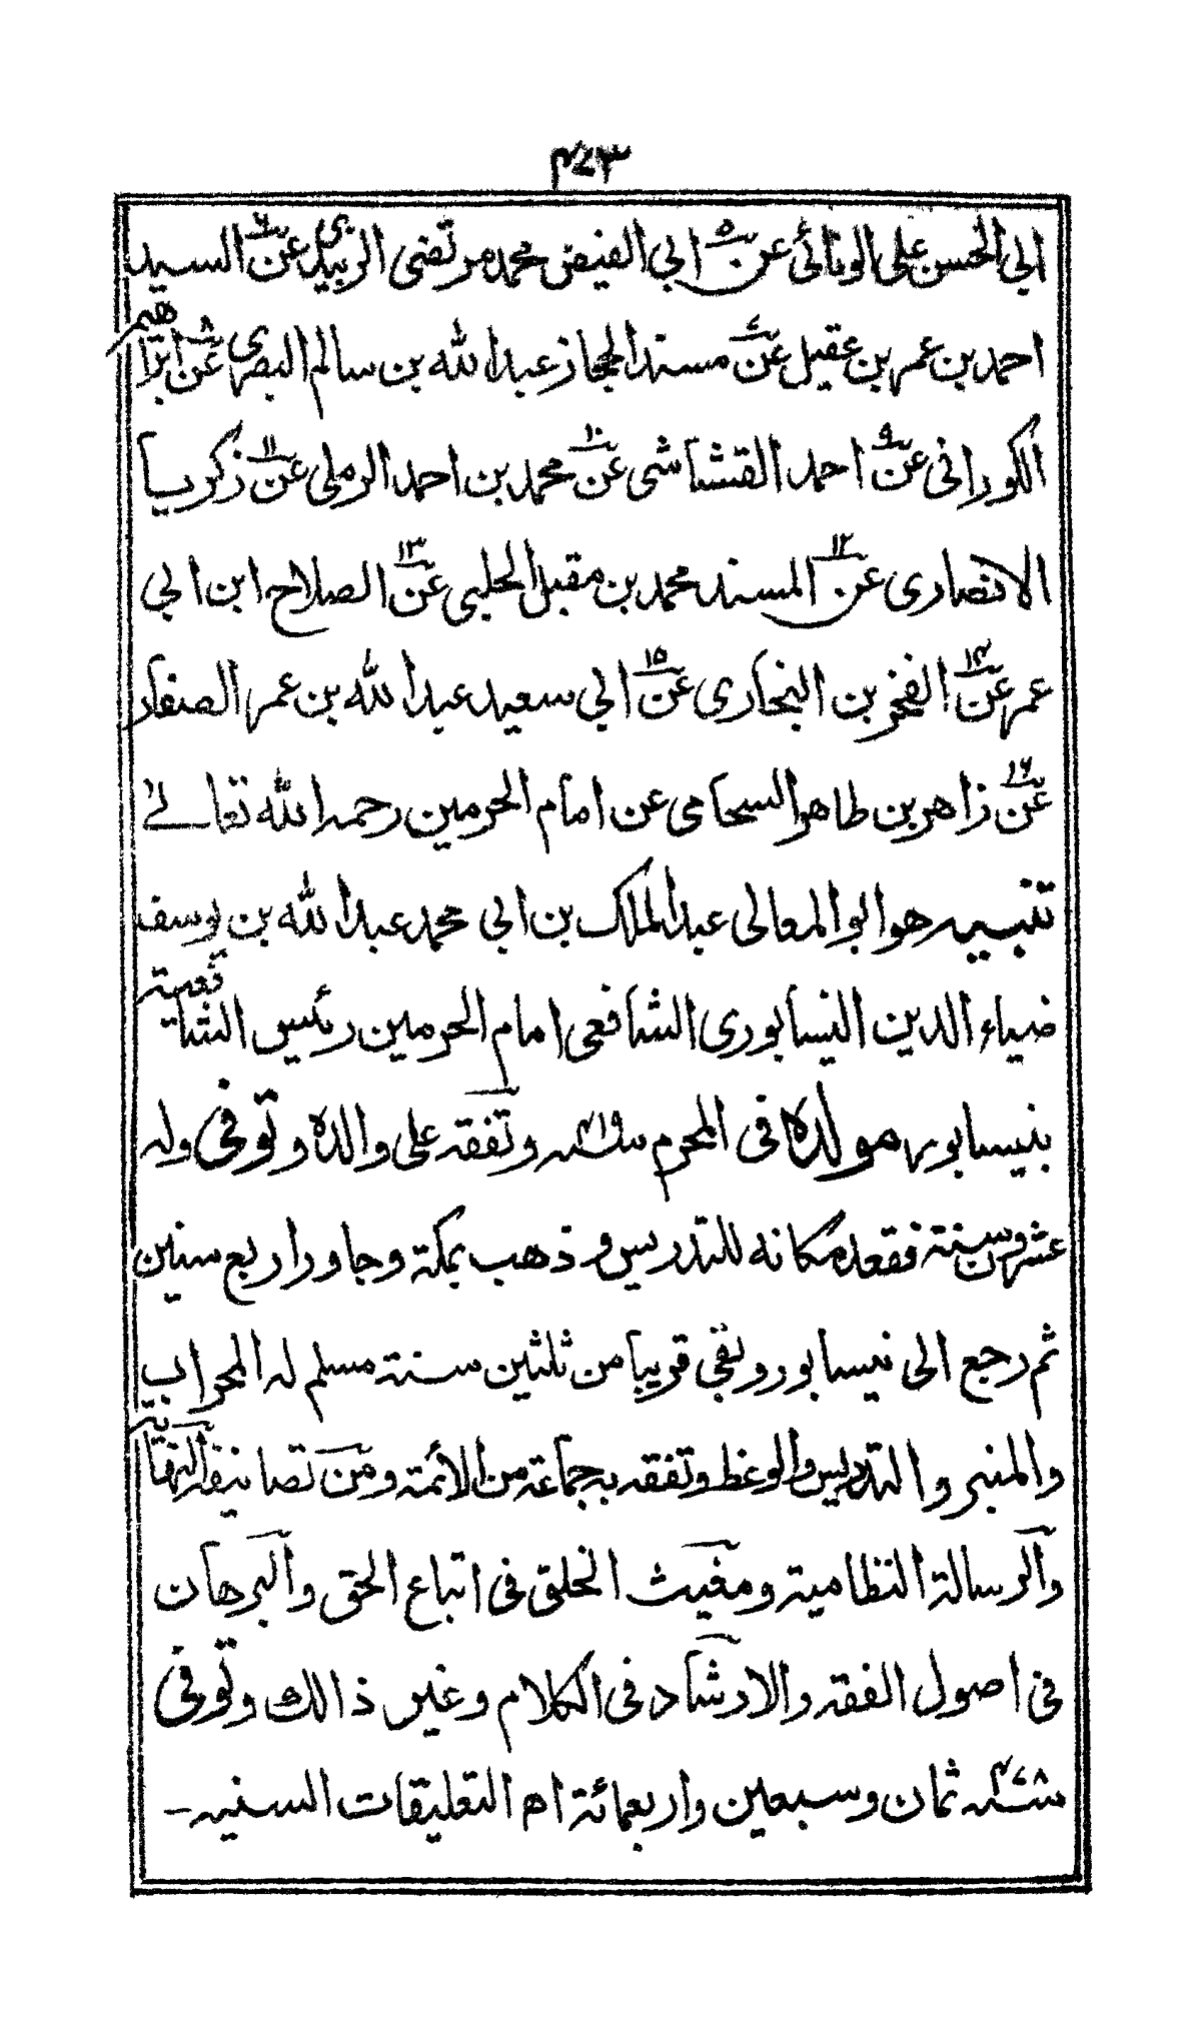 ٤٧٣
ابي الحسن علي الونائي عن ٥ ابي الفيض محمد مرتضى الزبيدي عن ٦ السيد
احمد بن عمر بن عقيل عن ٧ مسند الحجاز عبد الله بن سالم البصري عن ٨ ابراهيم
الكوراني عن ٩ احمد القشاشي عن ١٠ محمد بن احمد الرملي عن ١١ زكريا
الانصاري عن ١٢ المسند محمد بن مقبل الحلبي عن ١٣ الصلاح ابن ابي
عمر عن ١٤ الفخر بن البخاري عن ١٥ ابي سعيد عبد الله بن عمر الصفار
عن ١٦ زاهر بن طاهر السحامي عن امام الحرمين رحمه الله تعالى
تنبيه هو ابو المعالي عبد الملك بن ابي محمد عبد الله بن يوسف
ضياء الدين النيسابوري الشافعي امام الحرمين رئيس الشافعية
بنيسابور مولده في المحرم سنة ٤١٩ وتفقه على والده وتوفي وله
عشرون سنة فقعد مكانه للتدريس وذهب بمكة وجاور اربع سنين
ثم رجع الى نيسابور وبقي قريبا من ثلثين سنة مسلم له المحراب
والمنبر والتدريس والوعظ وتفقه به جماعة من الائمة ومن تصانيفه النهاية
والرسالة النظامية ومغيث الخلق في اتباع الحق والبرهان
في اصول الفقه والارشاد في الكلام وغير ذالك وتوفي
سنة ٤٧٨ ثمان وسبعين واربعمائة اه التعليقات السنيه -